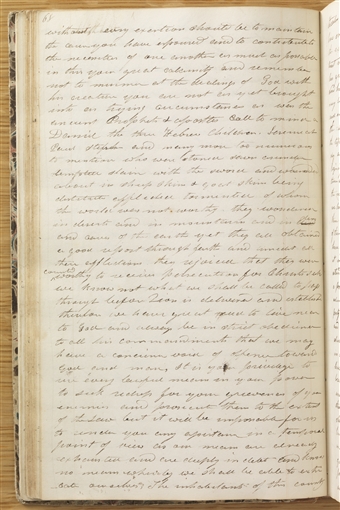 68
without every exertion should be to maintain
the cause you have espoused and to contribute to
the necessities of one another as much as possible
in this your great calamity and remember
not to murmur at the dealings of God with
his creature you are not as yet brought
into as trying circumstances as was the
ancient Prophets & apostles Call to mind a
Daniel the three Hebrew children Jeremiah
Paul Stephen and many more too numerous
to mention who were stoned sawn asunder
tempted slain with the sword and wandered
about in sheep skins & goat skins being
destitute afflicted tormented of whom
the world was not worthy they wandered
in deserts and in mountains and in dens
and caves of the earth yet they all obtained
a good report through faith and amidst all
their afflictions they rejoiced that they were
counted worthy to receive persecution for Christ sake
we know not what we shall be called to pass
through before Zion is delivered and established
therefore we have great need to live near
to God and always be in strict obedience
to all his commandments that we may
have a conscience void of offence toward
God and man. It is your privilege to
use every lawful means in your power
to seek redress for your grievances of your
enemies and prosecute them to the extent
of the law but it will be impossible for us
to render you any assistance in temporal
point of view as our means are already
exhausted and are deeply in debt and know
no means whereby we shall be able to extri
cate ourselves The inhabitants of this county